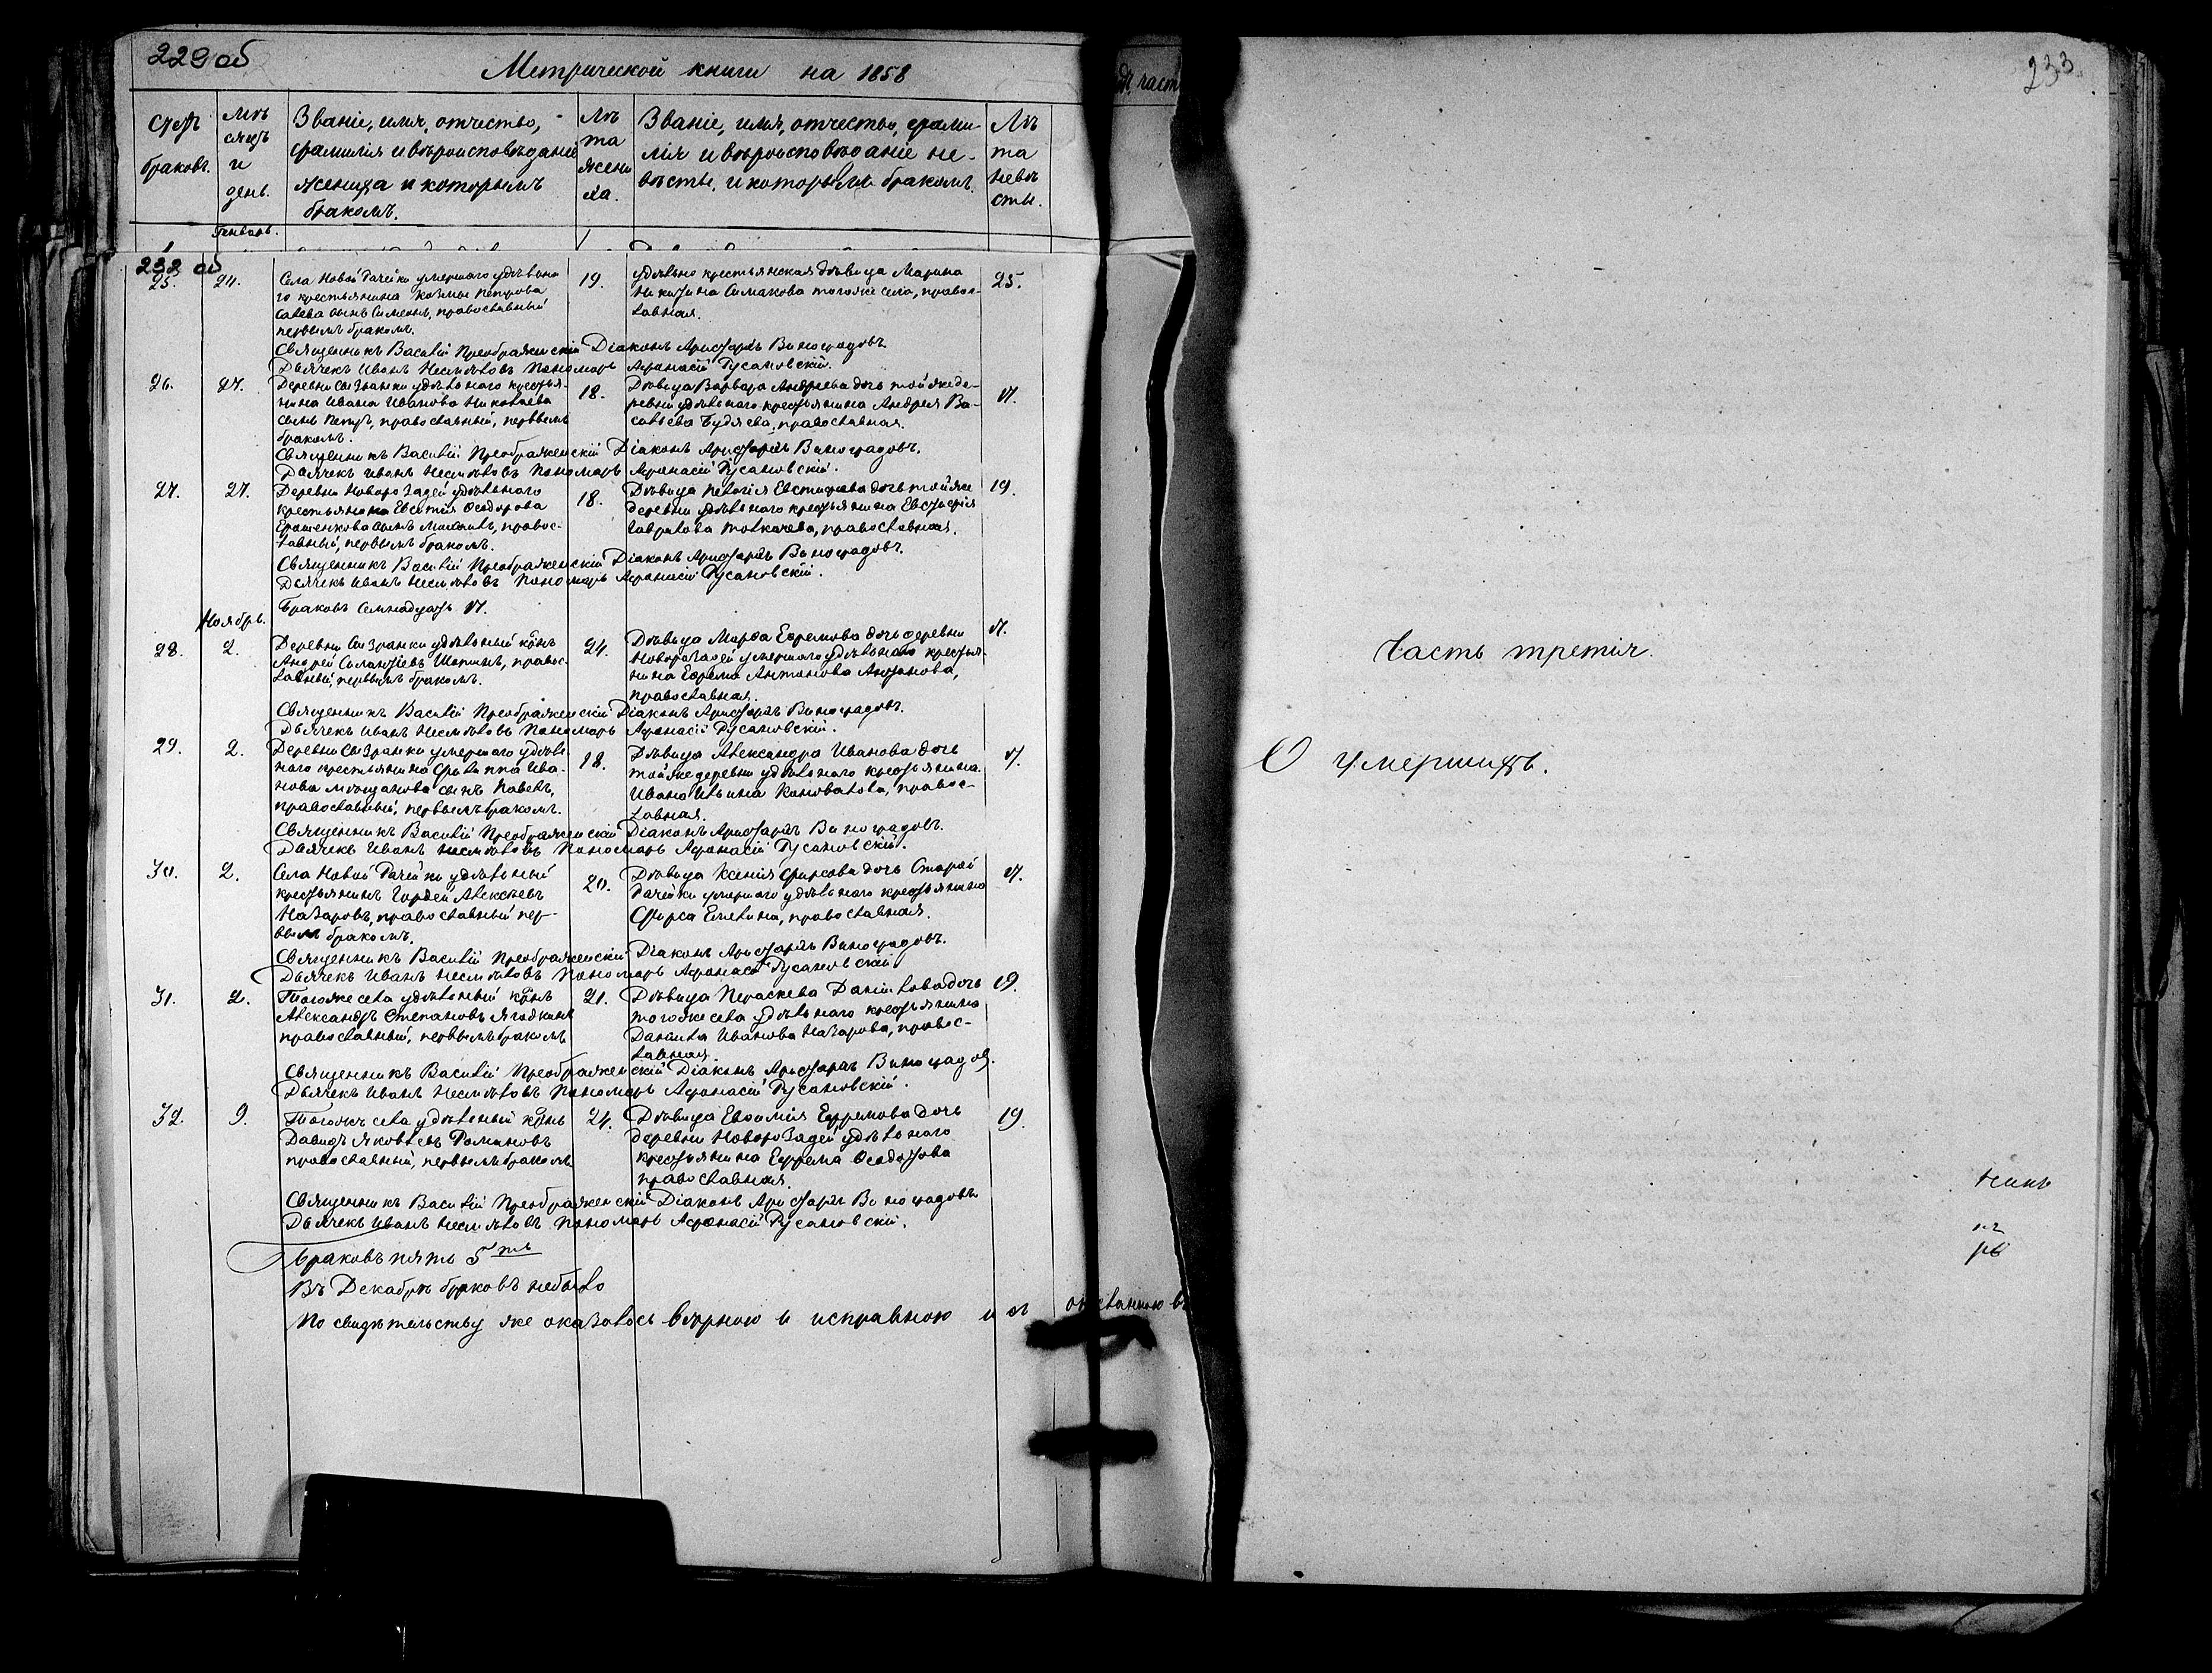 229 об
Метрической книги на 1858
Счетъ браковъ.
Мѣсяцъ и день.
Званіе, имя, отчество, фамилія и вѣроисповѣданіе жениха и которымъ бракомъ.
Лѣта жениха.
Званіе, имя, отчество, фамилія и вѣроисповѣданіе невѣсты, и которымъ бракомъ.
Лѣта невѣсты.
Генварь.
232 об
25. 24. Села Новой Рачейки умершаго удѣльна- 19. удѣльно крестьянская дѣвица Марина 25.
го крестьянина Козмы Петрова Никитина Симакова тогоже села, правос-
сынъ Симеонъ, православный лавная.
первымъ бракомъ.
Священникъ Василій Преображенскій Діаконъ Аристархъ Виноградовъ
Дьячекъ Иванъ Несмѣловъ Пономарь Афанасій Русановскій.
26. 27. Деревни Сызранки удѣльнаго крестья- 18. Дѣвица Варвара Андреева дочь той же де- 17.
нина Ивана Иванова Николаева ревни удѣльнаго крестьянина Андрея Ва-
сынъ Петръ, православный, первымъ сильева православная.
бракомъ.
Священникъ Василій Преображенскій Діаконъ Аристархъ Виноградовъ.
Дьячекъ Иванъ Несмѣловъ Пономарь Афанасій Русановскій.
27. 27. Деревни Новорозадей удѣльнаго 18. Дѣвица Пелагія Евстифѣева дочь той же 19.
крестьянина Ѳеодорова деревни удѣльнаго крестьянина
Ерошенкова сынъ Михаилъ, правос- Гаврилова Толкачева, православная.
лавный, первымъ бракомъ.
Священникъ Василій Преображенскій Діаконъ Аристархъ Виноградовъ.
Дьячекъ Иванъ Несмѣловъ Пономарь Афанасій Русановскій.
Браковъ семнадцать 17.
Ноябрь.
28. 2. Деревни Сызранки удѣльный кр̃нъ 24. Дѣвица Марѳа Ефремова дочь деревни 17.
Андрей Силантіевъ Шапинъ, правос- Новорозадей умершаго удѣльнаго крестья-
лавный, первымъ бракомъ. нина Ефрема Антонова
православная.
Священникъ Василій Преображенскій Діаконъ Аристархъ Виноградовъ.
Дьячекъ Иванъ Несмѣловъ Пономарь Афанасій Русановскій.
29. 2. Деревни Сызранки умершаго удѣль- 18. Дѣвица Александра Иванова дочь 17.
наго крестьянина Филиппа Ива- той же деревни удѣльнаго крестьянина
нова сынъ Павелъ, Ивана Ильина Коновалова, правос-
православный, первымъ бракомъ. лавная.
Священникъ Василій Преображенскій Діаконъ Аристархъ Виноградовъ.
Дьячекъ Иванъ Несмѣловъ Пономарь Афанасій Русановскій.
30. 2. Села Новой Рачейки удѣльный 20. Дѣвица Ксенія Фирсова дочь Старой 17.
крестьянинъ Гордей Алексѣевъ Рачейки умершаго удѣльнаго крестьянина
Назаровъ, православный пер- Фирса Емелина, православная.
вымъ бракомъ.
Священникъ Василій Преображенскій Діаконъ Аристархъ Виноградовъ.
Дьячекъ Иванъ Несмѣловъ Пономарь Афанасій Русановскій
31. 2. Тогоже села удѣльный кр̃нъ 21. Дѣвица Пераскева Данилова дочь 19.
Александръ Степановъ Ягодкинъ тогоже села удѣльнаго крестьянина
православный, первымъ бракомъ Данила Иванова Назарова, правос-
лавная.
Священникъ Василій Преображенскій Діаконъ Аристархъ Виноградовъ.
Дьячекъ Иванъ Несмѣловъ Пономарь Афанасій Русановскій.
32. 9. Тогоже села удѣльный кр̃нъ 24. Дѣвица Евѳимія Ефремова дочь 19.
Давидъ Яковлевъ Романовъ деревни Новорозадей удѣльнаго
православный, первымъ бракомъ крестьянина Ефрема
православная.
Священникъ Василій Преображенскій Діаконъ Аристархъ Виноградовъ
Дьячекъ Иванъ Несмѣловъ Пономарь Афанасій Русановскій.
Браковъ пять 5ть
Въ Декабрѣ браковъ небыло
По свидѣтельству же оказалось вѣрною и исправною
233
Часть третія.
О умершихъ.